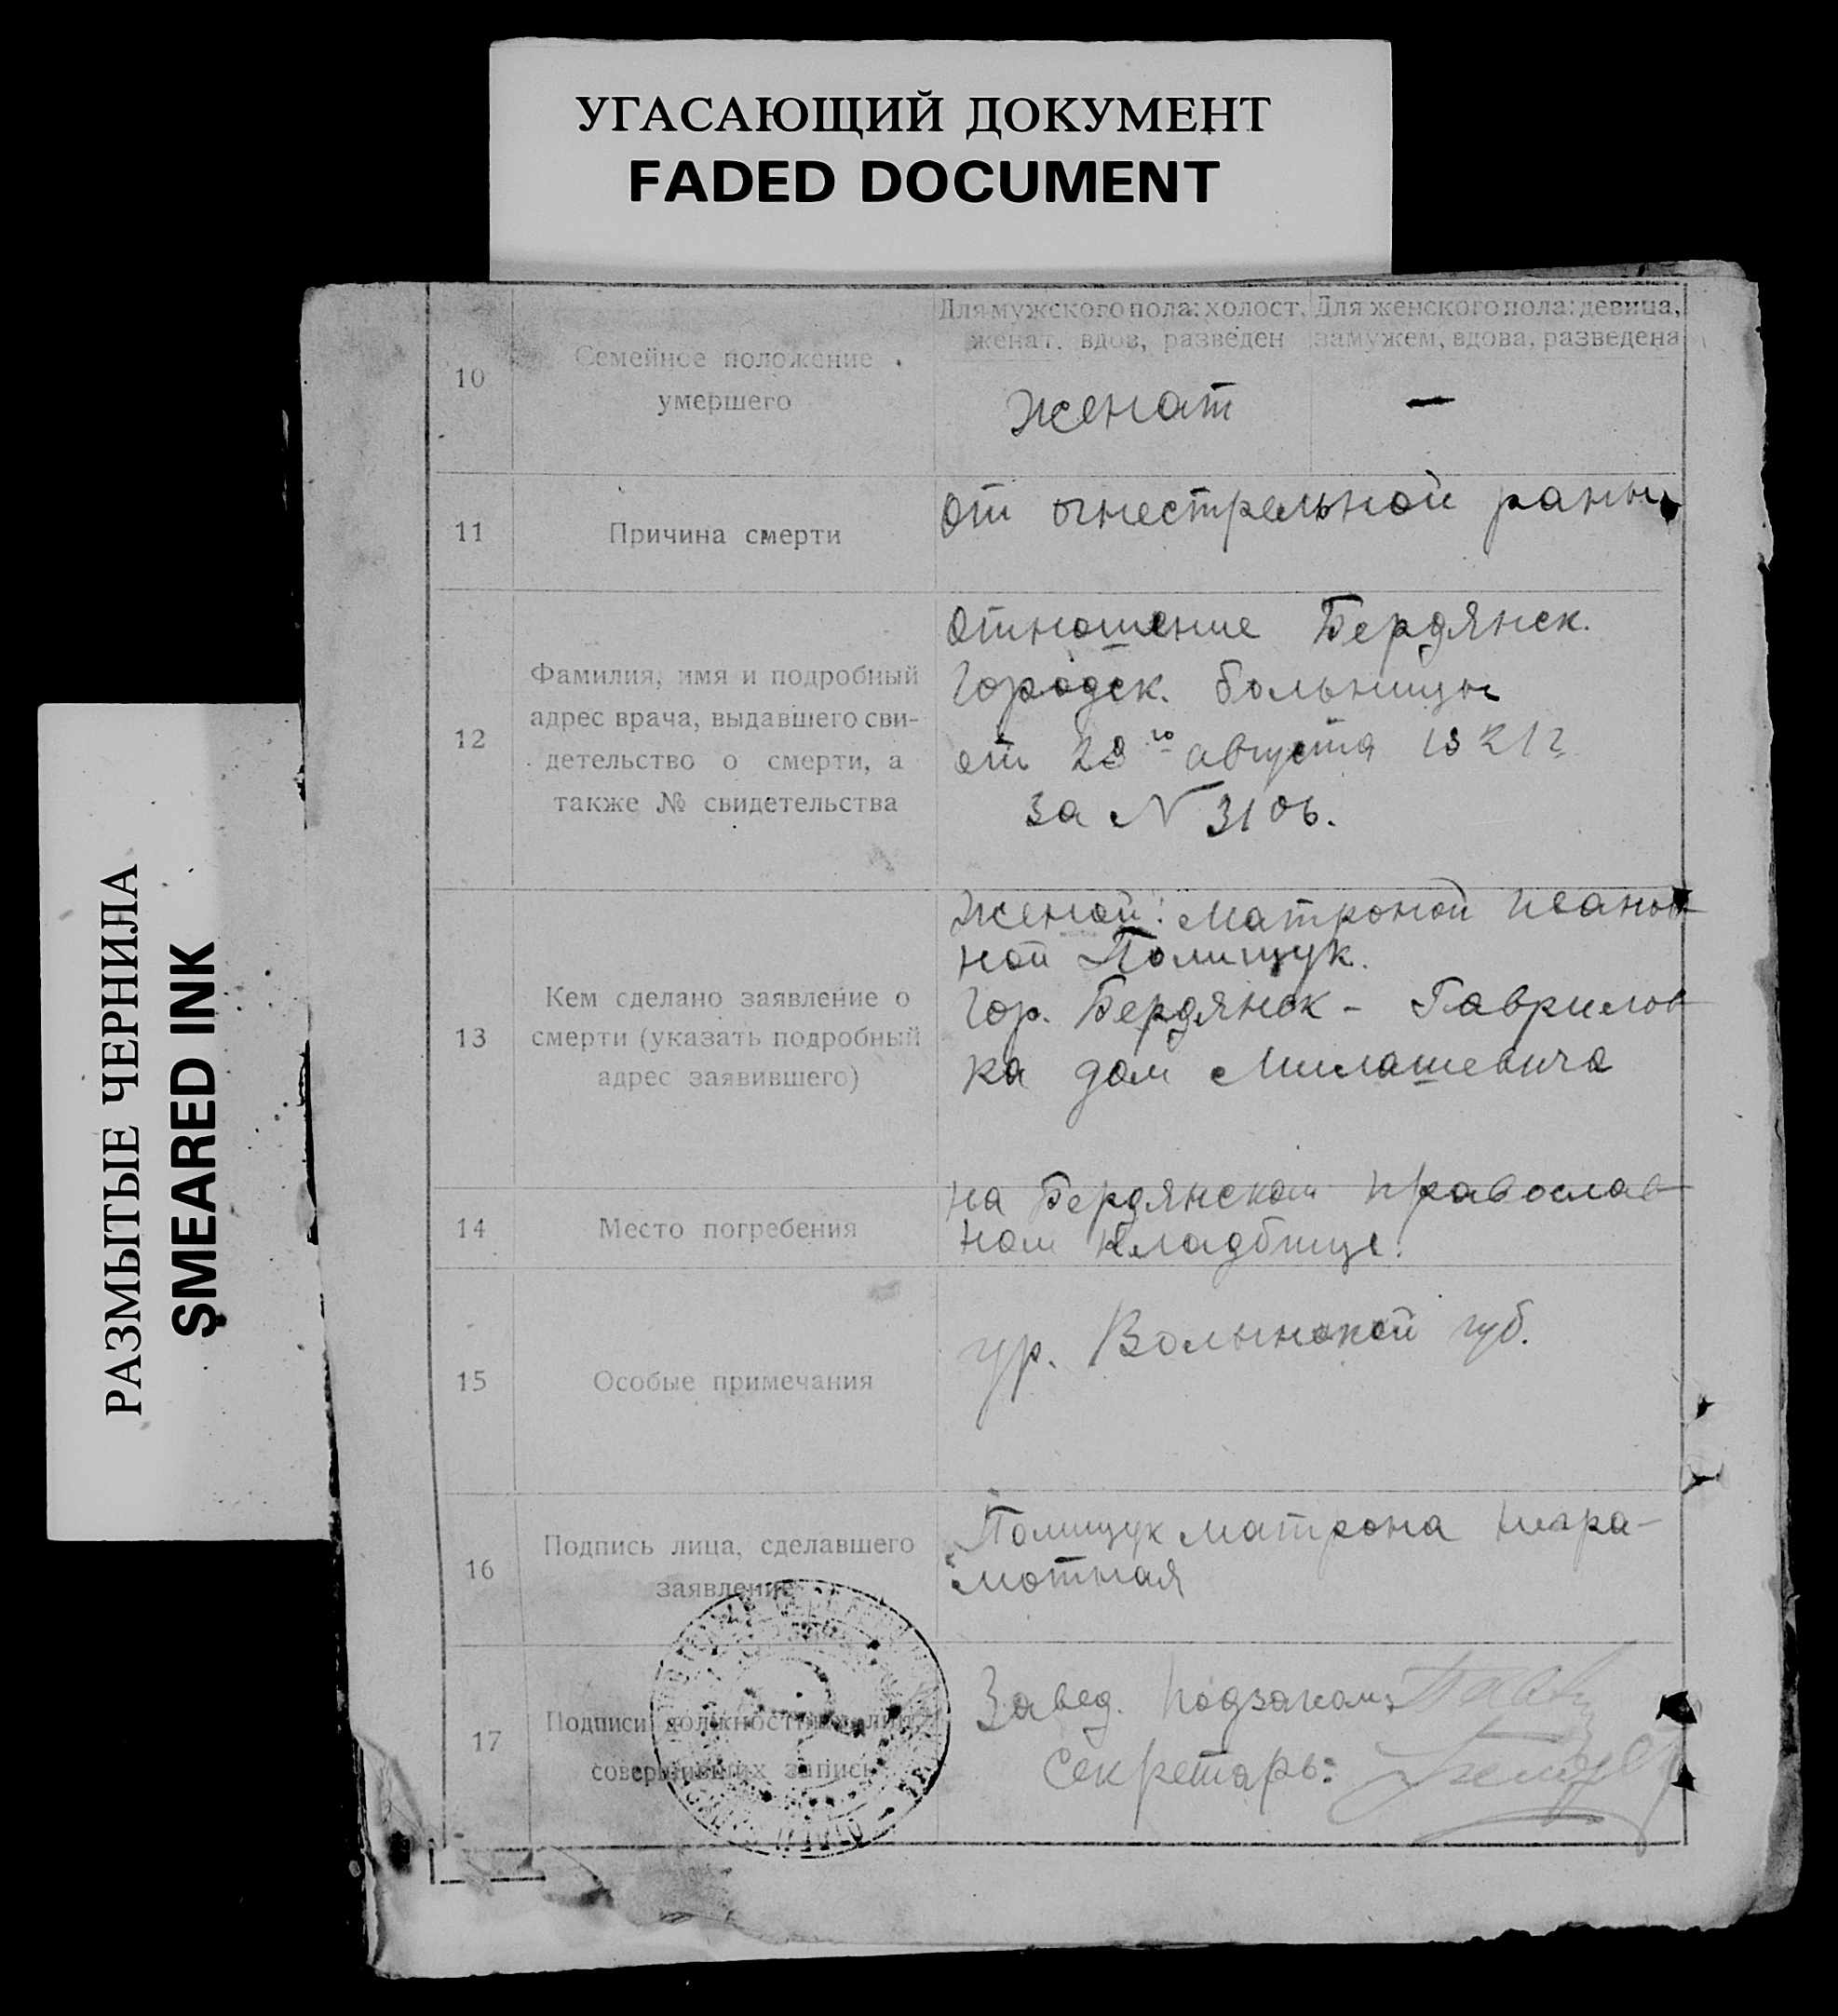 УГАСАЮЩИЙ ДОКУМЕНТ
FADED DOCUMENT
РАЗМЫТЫЕ ЧЕРНИЛА
SMEARED INK
10
Семейное положение
умершего
Для мужского пола: холост,
женат, вдов, разведен
Для женского пола: девица,
замужем, вдова, разведена
Женат
—
11
Причина смерти
От огнестрельной раны
12
Фамилия, имя и подробный
адрес врача, выдавшего сви-
детельство о смерти, а
также № свидетельства
Отношение Бердянск.
Городск. больницы
от 28го августа 1921 г
за N 3106.
13
Кем сделано заявление о
смерти (указать подробный
адрес заявившего)
Женой: Матроной Иванов
ной Полищук.
Гор. Бердянск - Гаврилов
ка дом Милашевича
14
Место погребения
на Бердянском православ
ном кладбище.
15
Особые примечания
ур. Волынской губ.
16
Подпись лица, сделавшего
заявление
Полищук Матрона негра-
мотная
17
Подписи должностных лиц,
совершивших запись
Завед. Подзагом:
Секретарь: